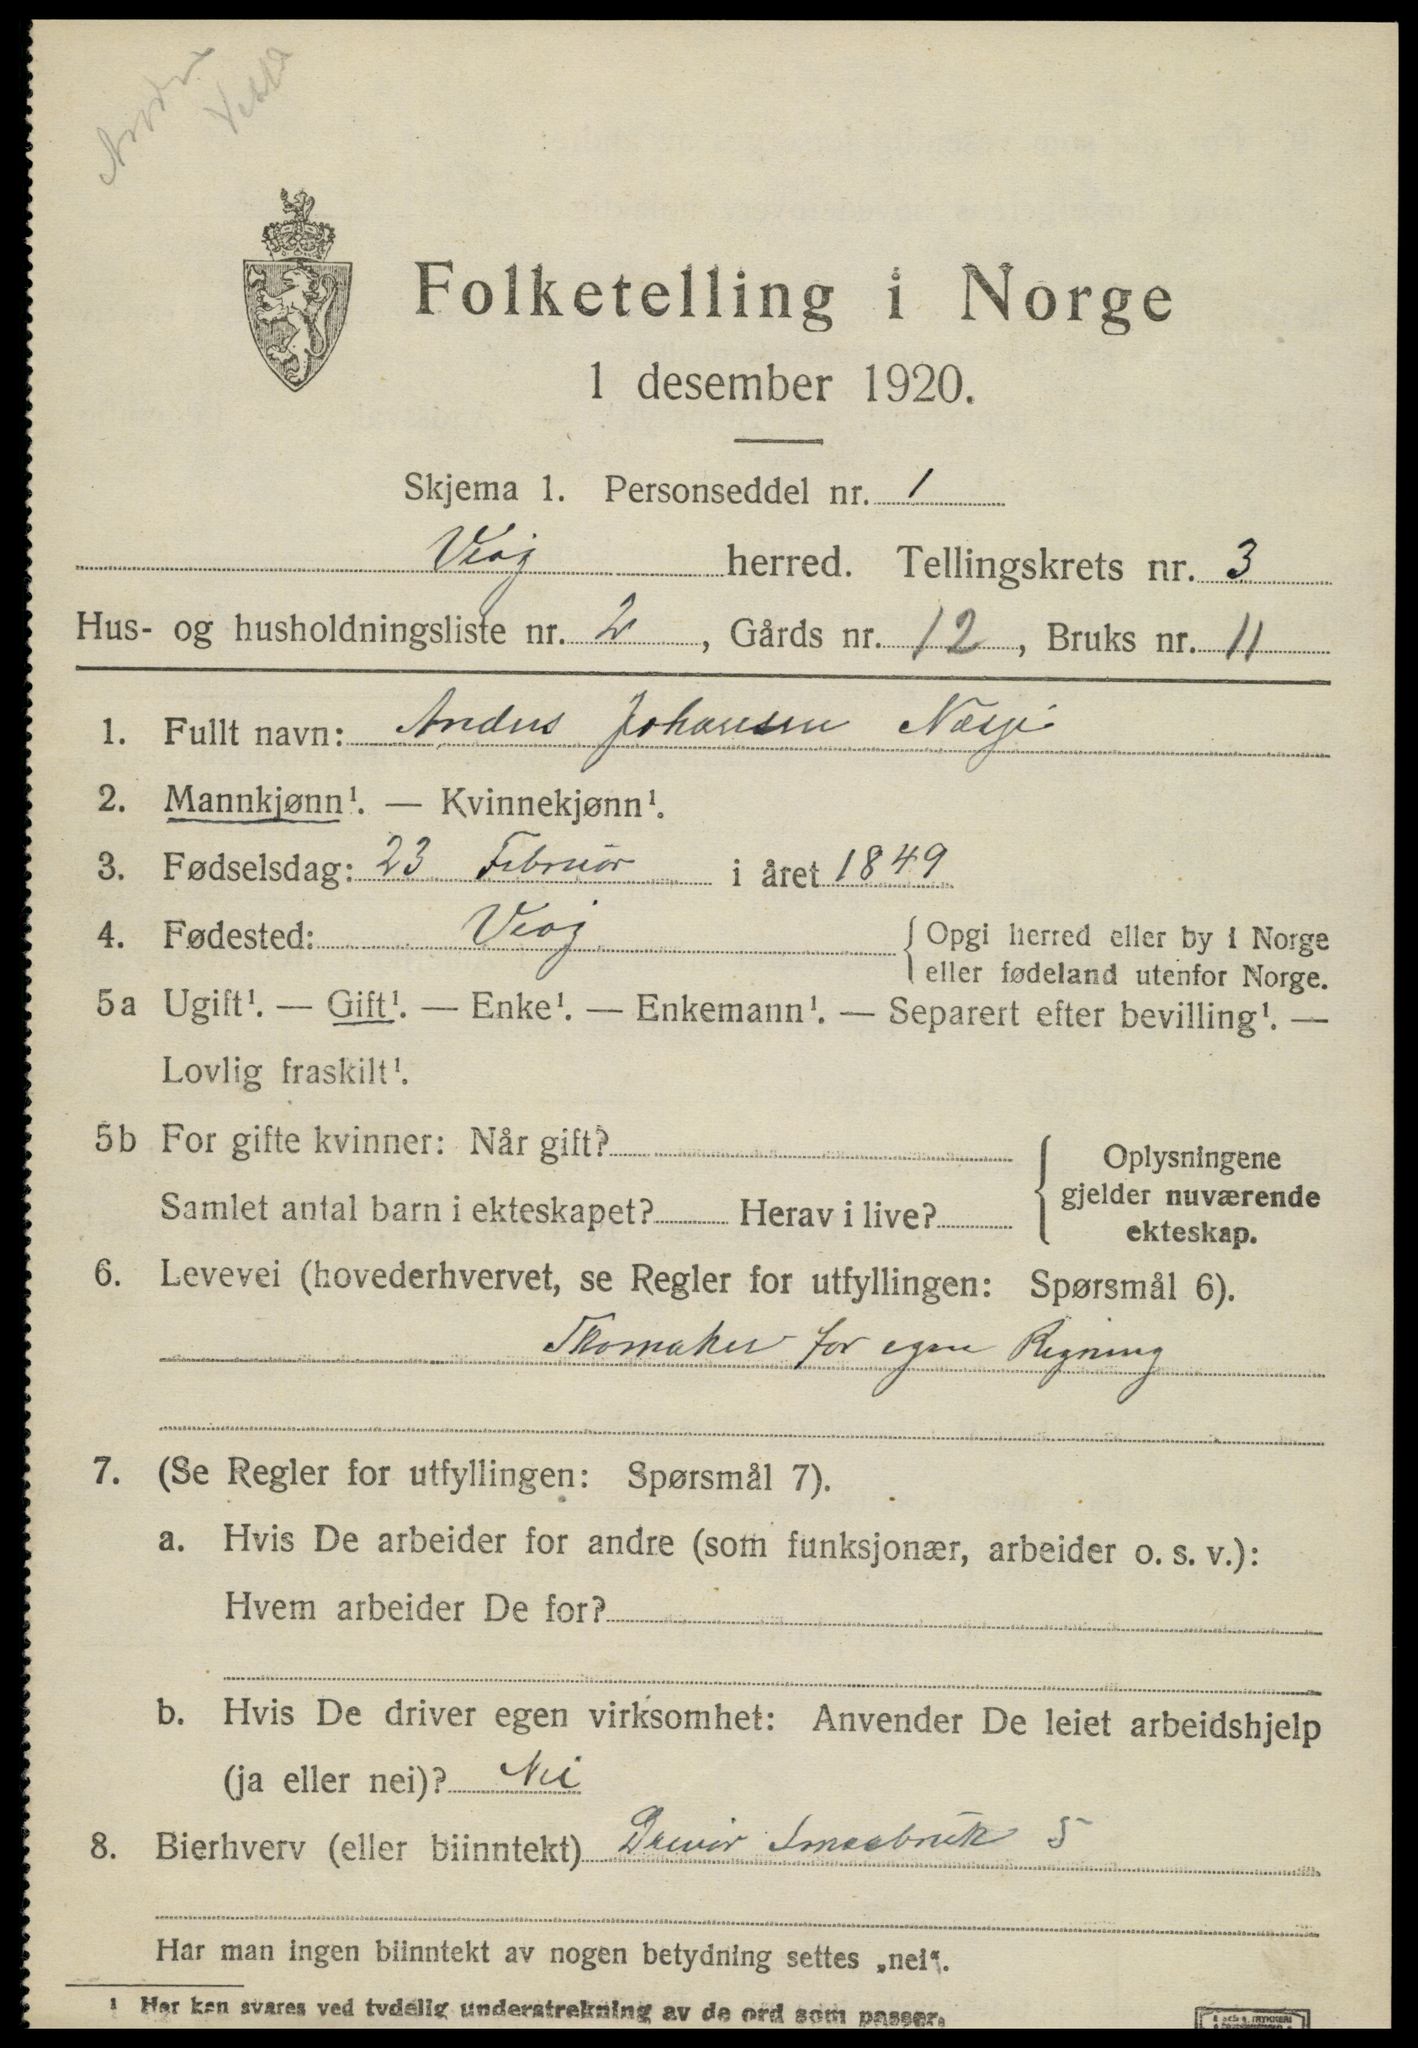 Folketelling i Norge
1 desember 1920.
Skjema 1. Personseddel nr. 1
Veøy herred. Tellingskrets nr. 3
Hus- og husholdningsliste nr. 2, Gårds nr. 12, Bruks nr. 11
1. Fullt navn: Anders Johansen Nesje
2. Mannkjønn¹. — Kvinnekjønn¹.
3. Fødselsdag: 23 Februar i året 1849
4. Fødested: Veøy { Opgi herred eller by i Norge
eller fødeland utenfor Norge.
5a Ugift¹. — Gift¹. — Enke¹. — Enkemann¹. — Separert efter bevilling¹. —
Lovlig fraskilt¹.
5b For gifte kvinner: Når gift?
Samlet antal barn i ekteskapet? Herav i live?
Oplysningene
gjelder nuværende
ekteskap.
6. Levevei (hovederhvervet, se Regler for utfyllingen: Spørsmål 6).
Skomaker for egen Regning
7. (Se Regler for utfyllingen: Spørsmål 7).
a. Hvis De arbeider for andre (som funksjonær, arbeider o. s. v.):
Hvem arbeider De for?
b. Hvis De driver egen virksomhet: Anvender De leiet arbeidshjelp
(ja eller nei)? Nei
8. Bierhverv (eller biinntekt) Driver Smaabruk 5
Har man ingen biinntekt av nogen betydning settes „nei“.
¹ Her kan svares ved tydelig understrekning av de ord som passer.